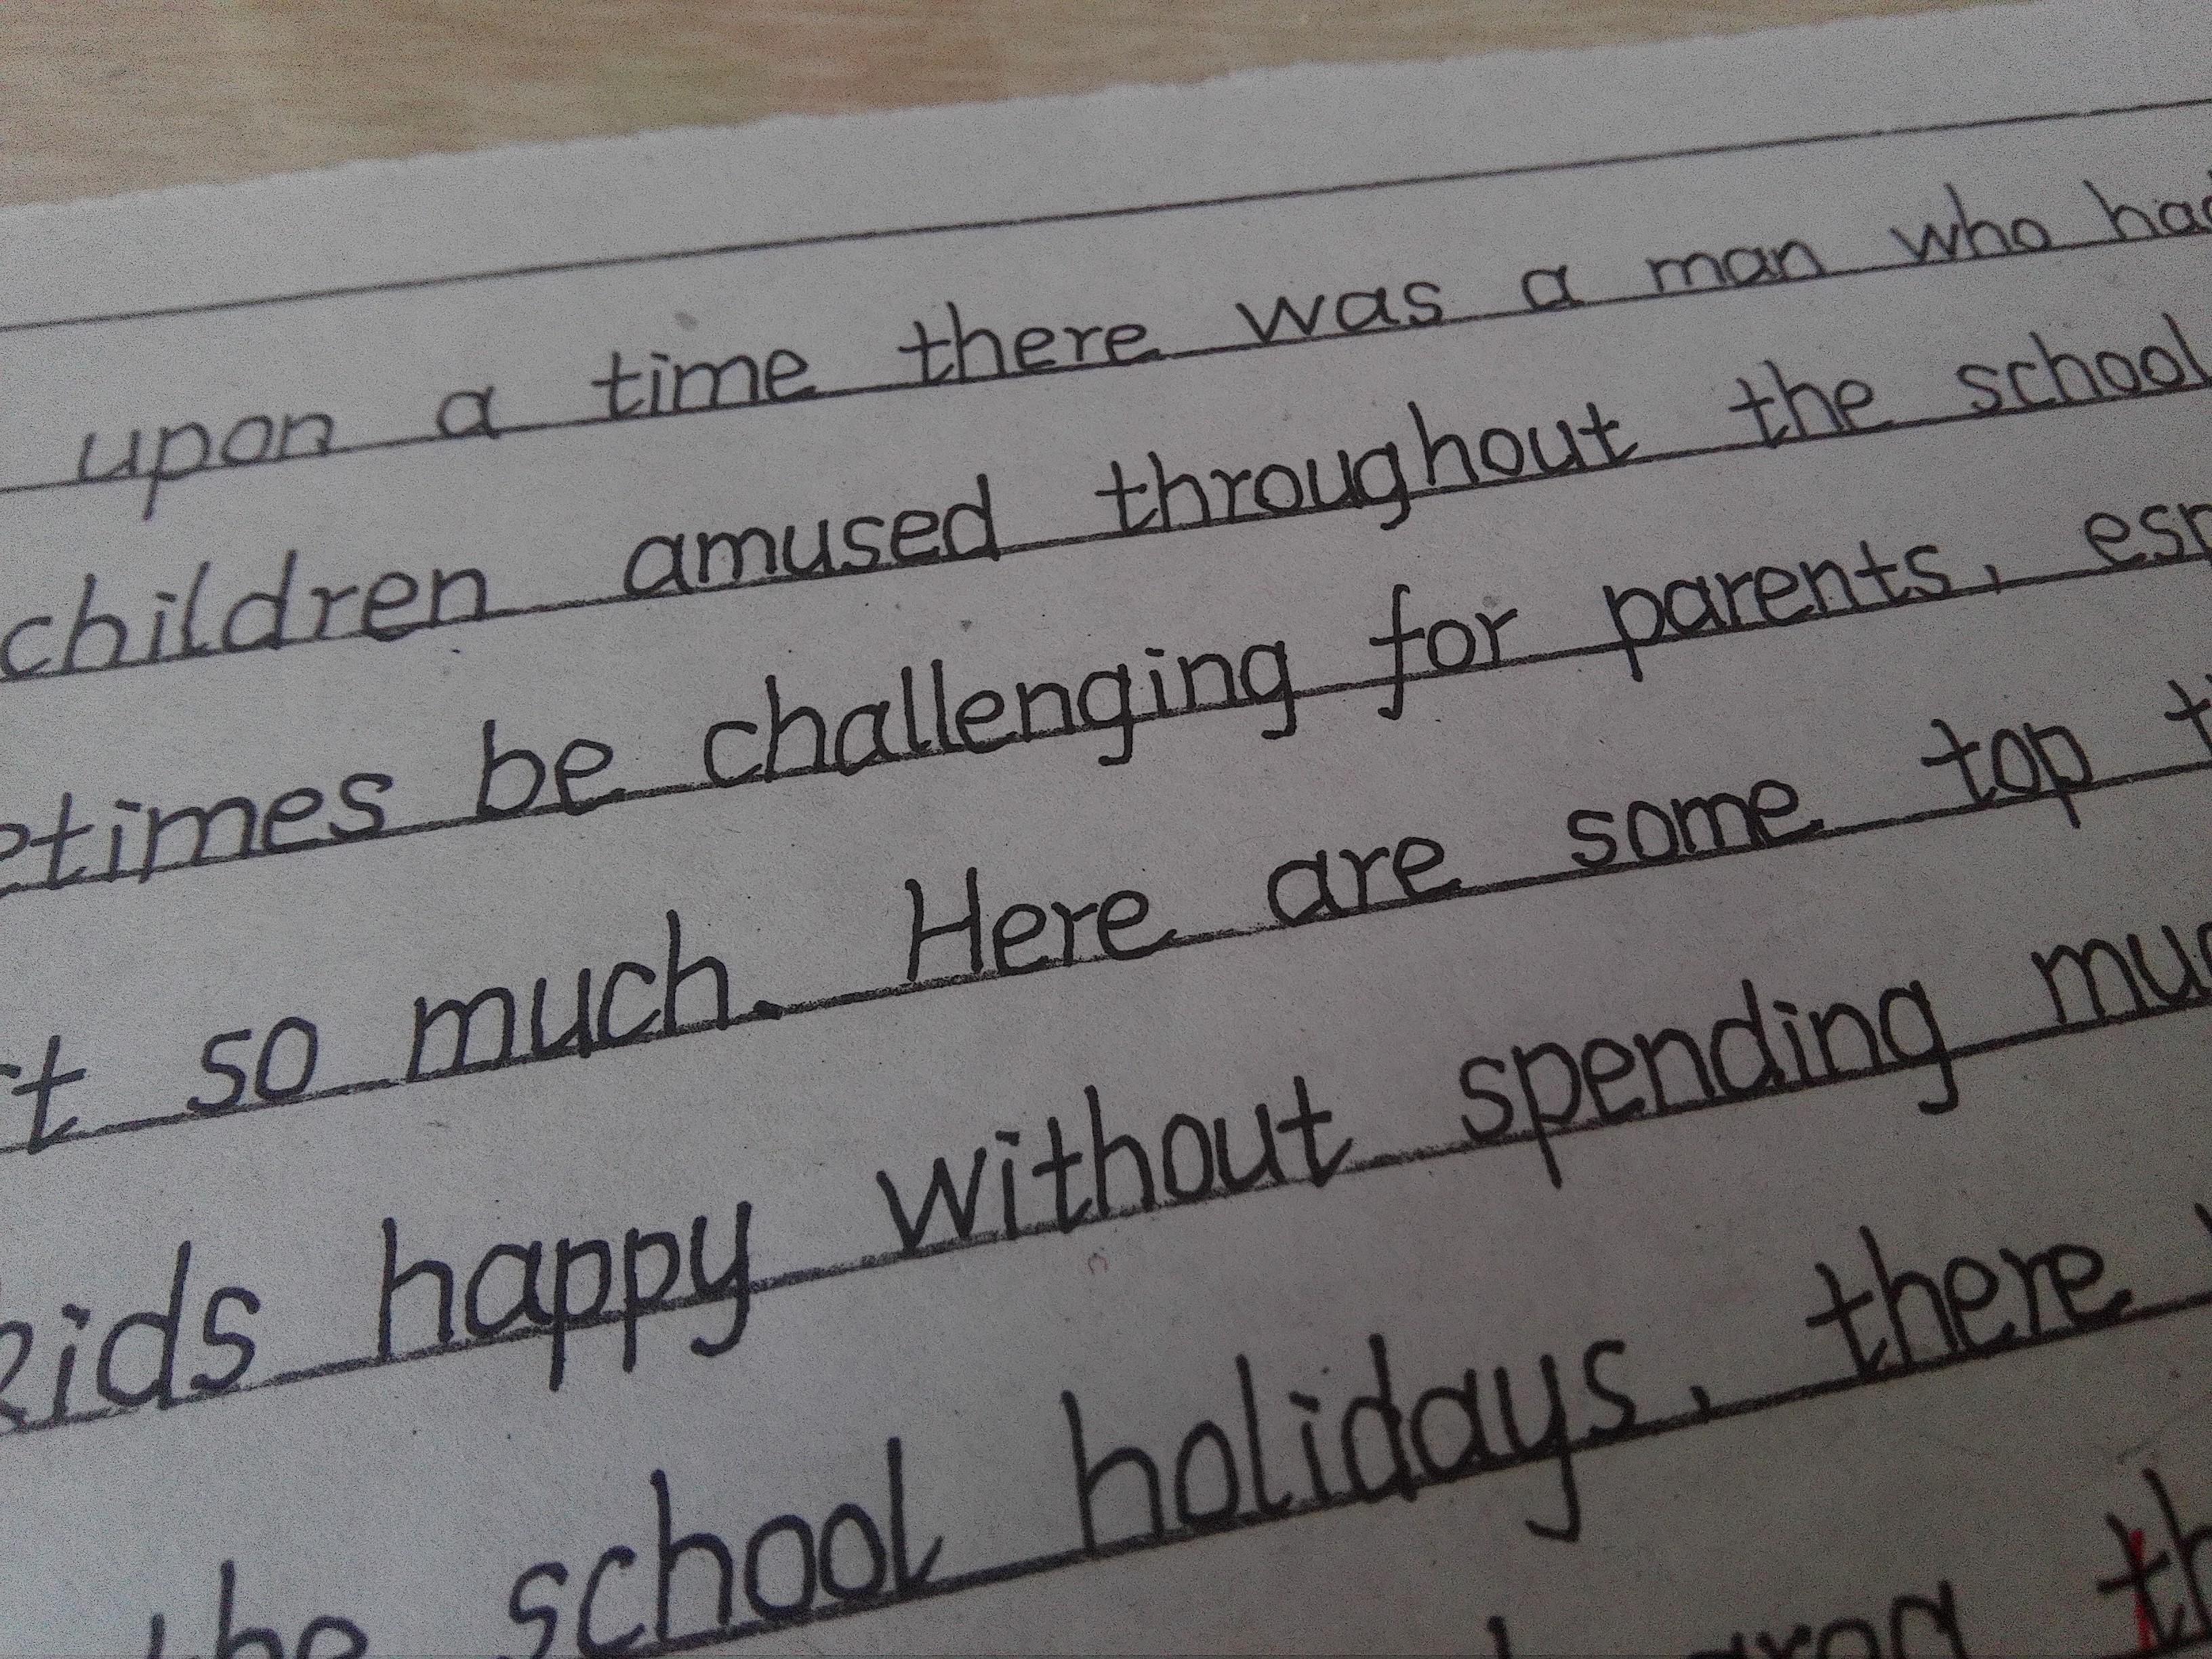 upon a time there was a man who had
children amused throughout the school
etimes be challenging for parents, esp
t so much. Here are some top t
kids happy without spending muc
the school holidays, there
th